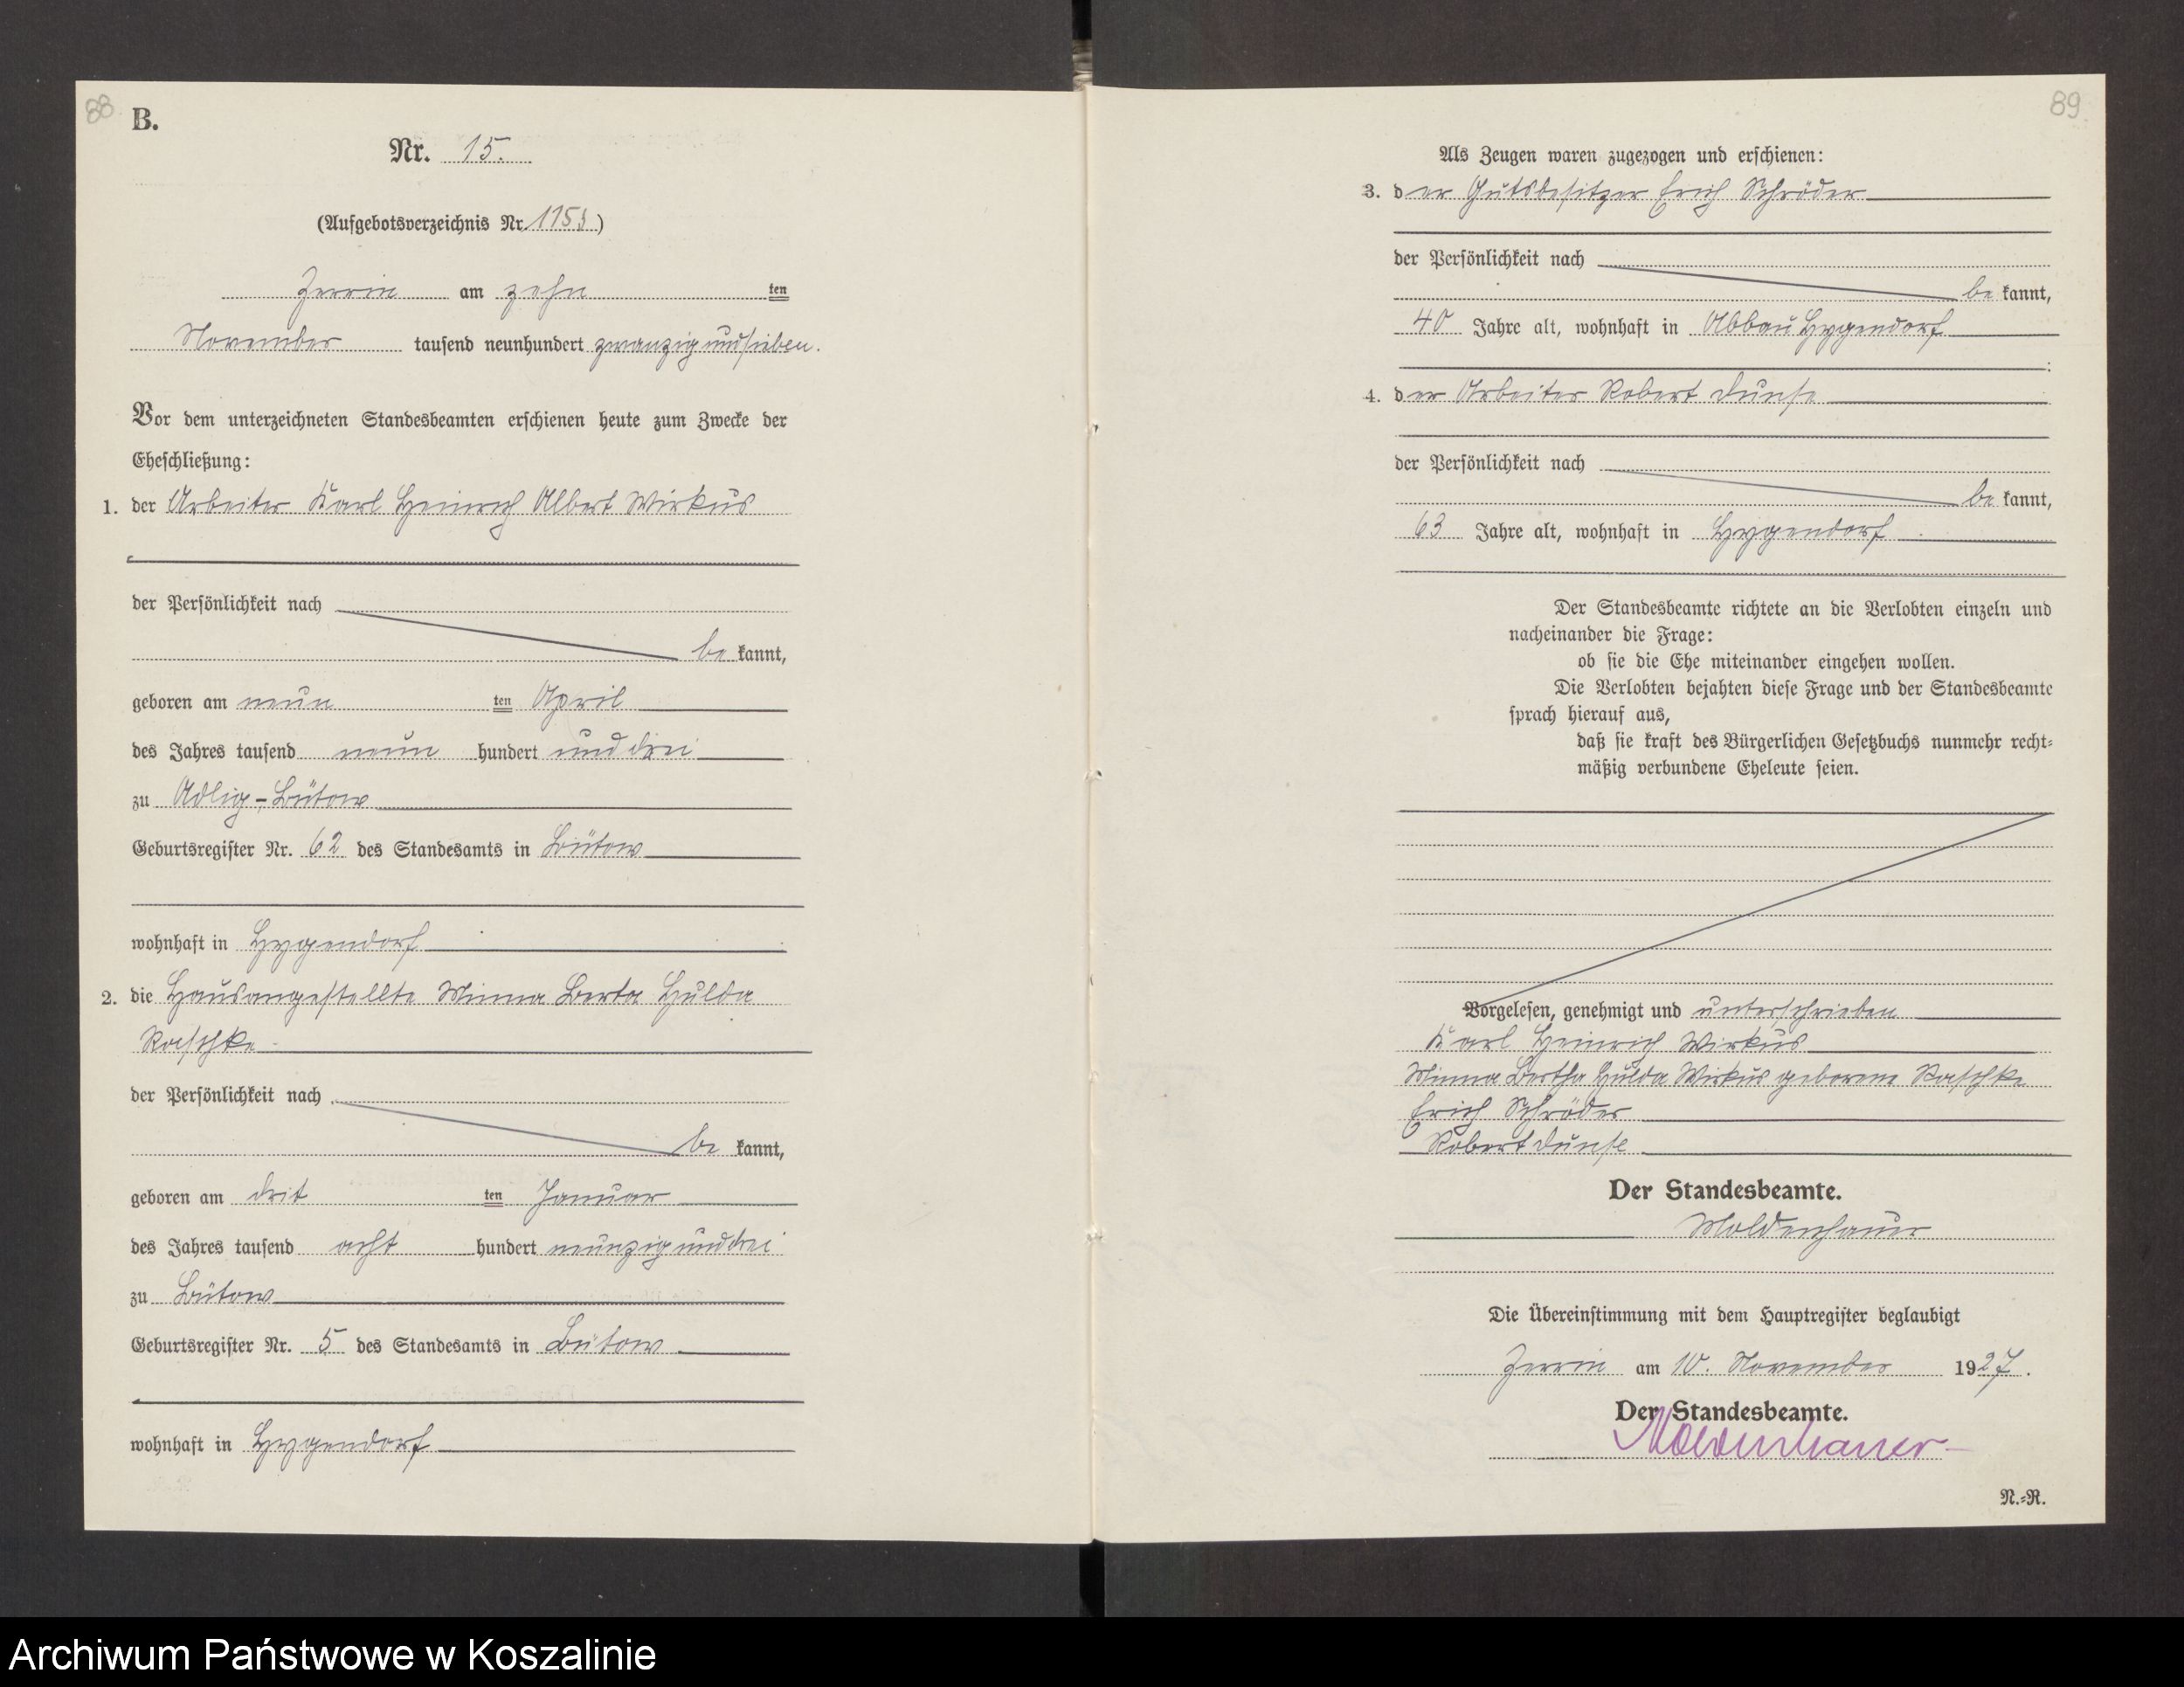 88
B.
Nr. 15.
(Aufgebotsverzeichnis Nr. 115)
Zerrin am zehn ten
November tausend neunhundert zwanzigundsieben.
Vor dem unterzeichneten Standesbeamten erschienen heute zum Zwecke der
Eheschließung:
1. der Arbeiter Karl Heinrich Albert Wirkus
der Persönlichkeit nach
be kannt,
geboren am neun ten April
des Jahres tausend neun hundert und drei
zu Adlig-Bütow
Geburtsregister Nr. 62 des Standesamts in Bütow
wohnhaft in Hygendorf
2. die Hausangestellte Minna Berta Hulda
Raschke
der Persönlichkeit nach
be kannt,
geboren am drit ten Januar
des Jahres tausend acht hundert neunzigunddrei
zu Bütow
Geburtsregister Nr. 5 des Standesamts in Bütow
wohnhaft in Hygendorf
89
Als Zeugen waren zugezogen und erschienen:
3. der Gutsbesitzer Erich Schröder
der Persönlichkeit nach
be kannt,
40 Jahre alt, wohnhaft in Abbau Hygendorf
;
4. der Arbeiter Robert Dunse
der Persönlichkeit nach
be kannt,
63 Jahre alt, wohnhaft in Hygendorf
Der Standesbeamte richtete an die Verlobten einzeln und
nacheinander die Frage:
ob sie die Ehe miteinander eingehen wollen.
Die Verlobten bejahten diese Frage und der Standesbeamte
sprach hierauf aus,
daß sie kraft des Bürgerlichen Gesetzbuchs nunmehr recht=
mäßig verbundene Eheleute seien.
Vorgelesen, genehmigt und unterschrieben
Karl Heinrich Wirkus
Minna Bertha Hulda Wirkus geborene Raschke
Erich Schröder
Robert Dunse
Der Standesbeamte.
Moldenhauer
Die Übereinstimmung mit dem Hauptregister beglaubigt
Zerrin am 10. November 1927.
Der Standesbeamte.
Moldenhauer
N.=R.
Archiwum Państwowe w Koszalinie